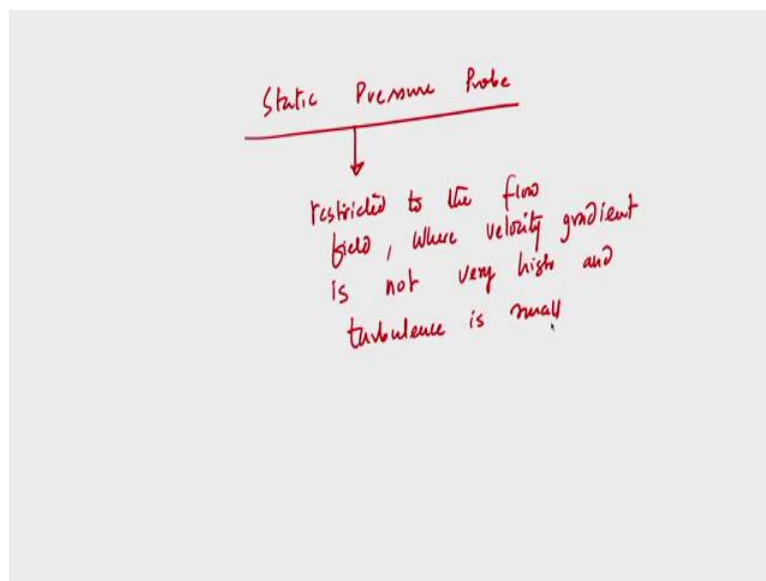 Static Pressure Probe
restricted to the flow
field, where velocity gradient
is not very high and
turbulence is small